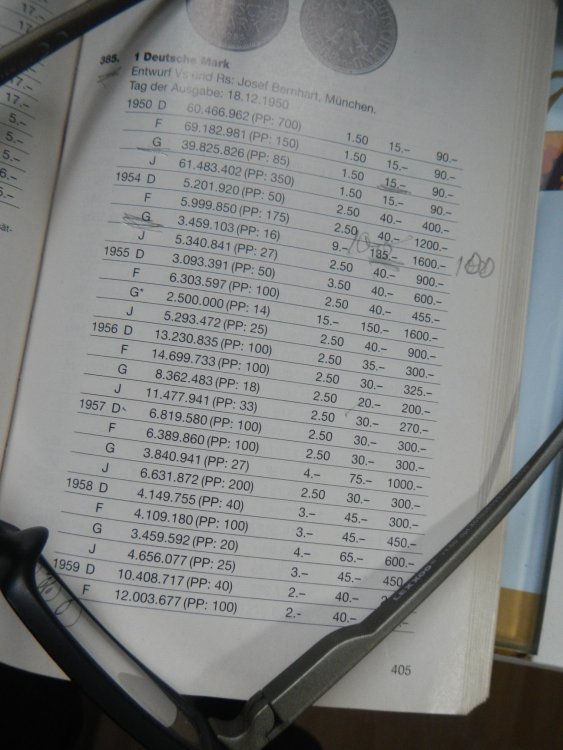 17.-
17.-
17.-
17.-
5,-
5.-
5.-
6.-
5.-
ät-
385. 1 Deutsche Mark
Entwurf Vs und Rs: Josef Bernhart, München,
Tag der Ausgabe: 18.12.1950
1950 D 60.466.962 (PP: 700) 1.50 15.– 90.–
F 69.182.981 (PP: 150) 1.50 15.– 90.–
G 39.825.826 (PP: 85) 1.50 15.– 90.–
J 61.483.402 (PP: 350) 1.50 15.– 90.–
1954 D 5.201.920 (PP: 50) 2.50 40.– 400.–
F 5.999.850 (PP: 175) 2.50 40.– 1200.–
G 3.459.103 (PP: 16) 9.– 185.– 1600.– 100
J 5.340.841 (PP: 27) 2.50 40.– 900.–
1955 D 3.093.391 (PP: 50) 3.50 40.– 600.–
F 6.303.597 (PP: 100) 2.50 40.– 455.–
G* 2.500.000 (PP: 14) 15.– 150.– 1600.–
J 5.293.472 (PP: 25) 2.50 40.– 900.–
1956 D 13.230.835 (PP: 100) 2.50 35.– 300.–
F 14.699.733 (PP: 100) 2.50 30.– 325.–
G 8.362.483 (PP: 18) 2.50 20.– 200.–
J 11.477.941 (PP: 33) 2.50 30.– 270.–
1957 D 6.819.580 (PP: 100) 2.50 30.– 300.–
F 6.389.860 (PP: 100) 2.50 30.– 300.–
G 3.840.941 (PP: 27) 4.– 75.– 1000.–
J 6.631.872 (PP: 200) 2.50 30.– 300.–
1958 D 4.149.755 (PP: 40) 3.– 45.– 300.–
F 4.109.180 (PP: 100) 3.– 45.– 450.–
G 3.459.592 (PP: 20) 4.– 65.– 600.–
J 4.656.077 (PP: 25) 3.– 45.– 450
1959 D 10.408.717 (PP: 40) 2.– 40.–
F 12.003.677 (PP: 100) 2.– 40.–
405